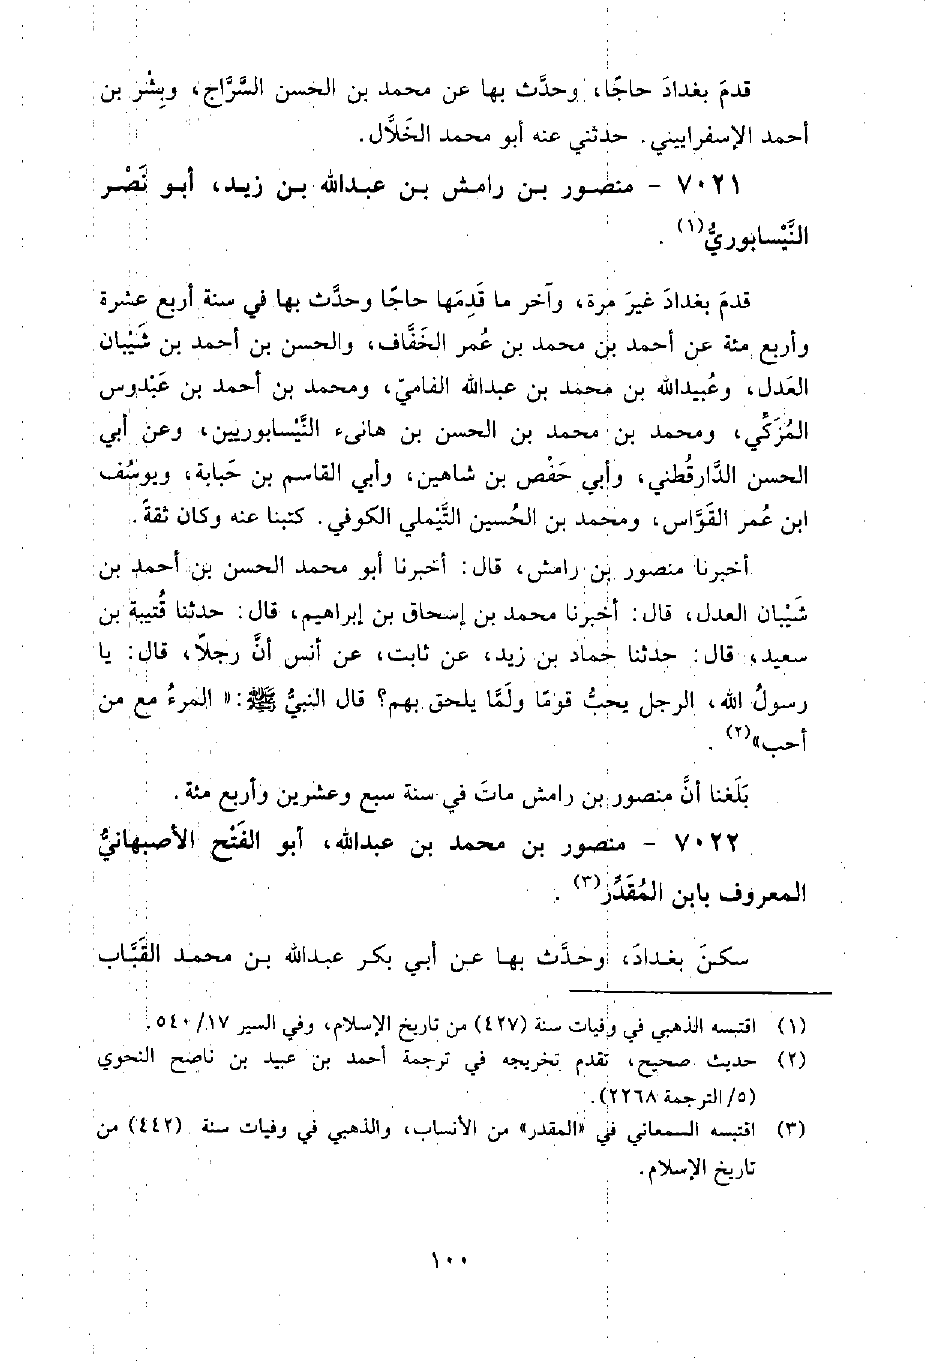 قدمَ بغدادَ حاجًا، وحدَّث بها عن محمد بن الحسن السَّرَّاج، وبِشْر بن
أحمد الإسفراييني. حدثني عنه أبو محمد الخَلَّال.
٧٠٢١ - منصور بن رامش بن عبدالله بن زيد، أبو نَصْر
النَّيْسابوريُّ(١) .
قدمَ بغدادَ غيرَ مرة، وآخر ما قَدِمَها حاجًا وحدَّث بها في سنة أربع عشرة
وأربع مئة عن أحمد بن محمد بن عُمر الخَفَّاف، والحسن بن أحمد بن شَيْبان
العَدل، وعُبيدالله بن محمد بن عبدالله الفاميّ، ومحمد بن أحمد بن عَبْدوس
المُزَكِّي، ومحمد بن محمد بن الحسن بن هانىء النَّيْسابوريين، وعن أبي
الحسن الدَّارقُطني، وأبي حَفْص بن شاهين، وأبي القاسم بن حَبابة، ويوسُف
ابن عُمر القَوَّاس، ومحمد بن الحُسين التَّيْملي الكوفي. كتبنا عنه وكان ثقةً.
أخبرنا منصور بن رامش، قال: أخبرنا أبو محمد الحسن بن أحمد بن
شَيْبان العدل، قال: أخبرنا محمد بن إسحاق بن إبراهيم، قال: حدثنا قُتيبة بن
سعيد، قال: حدثنا حماد بن زيد، عن ثابت، عن أنس أنَّ رجلاً، قال: يا
رسولُ الله، الرجل يحبُّ قومًا ولَمَّا يلحق بهم؟ قال النبيُّ ﷺ: «المرءُ مع من
أحب»(٢) .
بَلَغنا أنَّ منصور بن رامش ماتَ في سنة سبع وعشرين وأربع مئة.
٧٠٢٢ - منصور بن محمد بن عبدالله، أبو الفَتْح الأصبهانيُّ
المعروف بابن المُقَدِّر(٣) .
سكنَ بغدادَ، وحدَّث بها عن أبي بكر عبدالله بن محمد القَبَّاب
(١) اقتبسه الذهبي في وفيات سنة (٤٢٧) من تاريخ الإسلام، وفي السير ١٧/ ٥٤٠.
(٢) حديث صحيح، تقدم تخريجه في ترجمة أحمد بن عبيد بن ناصح النحوي
(٥/ الترجمة ٢٢٦٨).
(٣) اقتبسه السمعاني في «المقدر» من الأنساب، والذهبي في وفيات سنة (٤٤٢) من
تاريخ الإسلام.
١٠٠